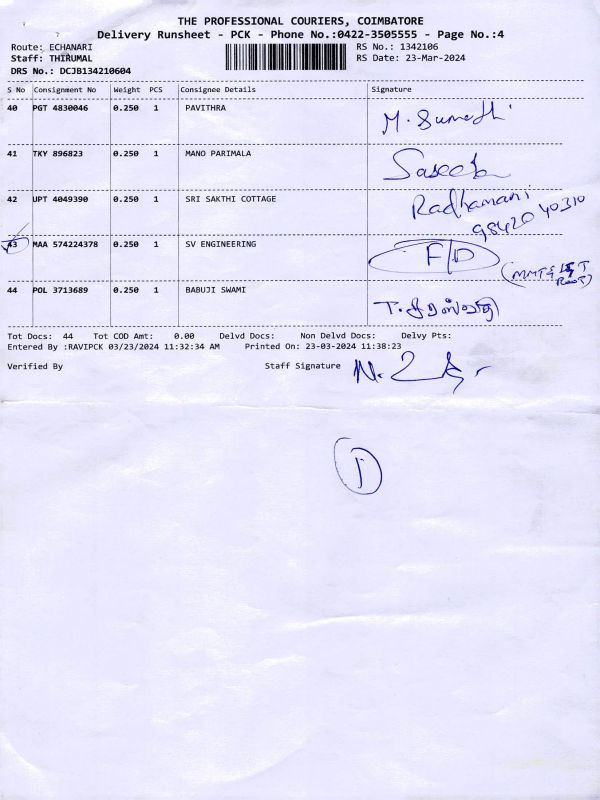 THE PROFESSIONAL COURIERS, COIMBATORE
Delivery Runsheet - PCK - Phone No.:0422-3505555 - Page No.:4
Route: ECHANARI RS No.: 1342106
Staff: THIRUMAL RS Date: 23-Mar-2024
DRS No.: DCJB134210604
S No Consignment No Weight PCS Consignee Details Signature
40 PGT 4830046 0.250 1 PAVITHRA M. Sumathi
41 TKY 896823 0.250 1 MANO PARIMALA
42 UPT 4049390 0.250 1 SRI SAKTHI COTTAGE Radhamani
98420 40310
43 MAA 574224378 0.250 1 SV ENGINEERING F/D
44 POL 3713689 0.250 1 BABUJI SWAMI T. சரஸ்வதி
Tot Docs: 44 Tot COD Amt: 0.00 Delvd Docs: Non Delvd Docs: Delvy Pts:
Entered By :RAVIPCK 03/23/2024 11:32:34 AM Printed On: 23-03-2024 11:38:23
Verified By Staff Signature